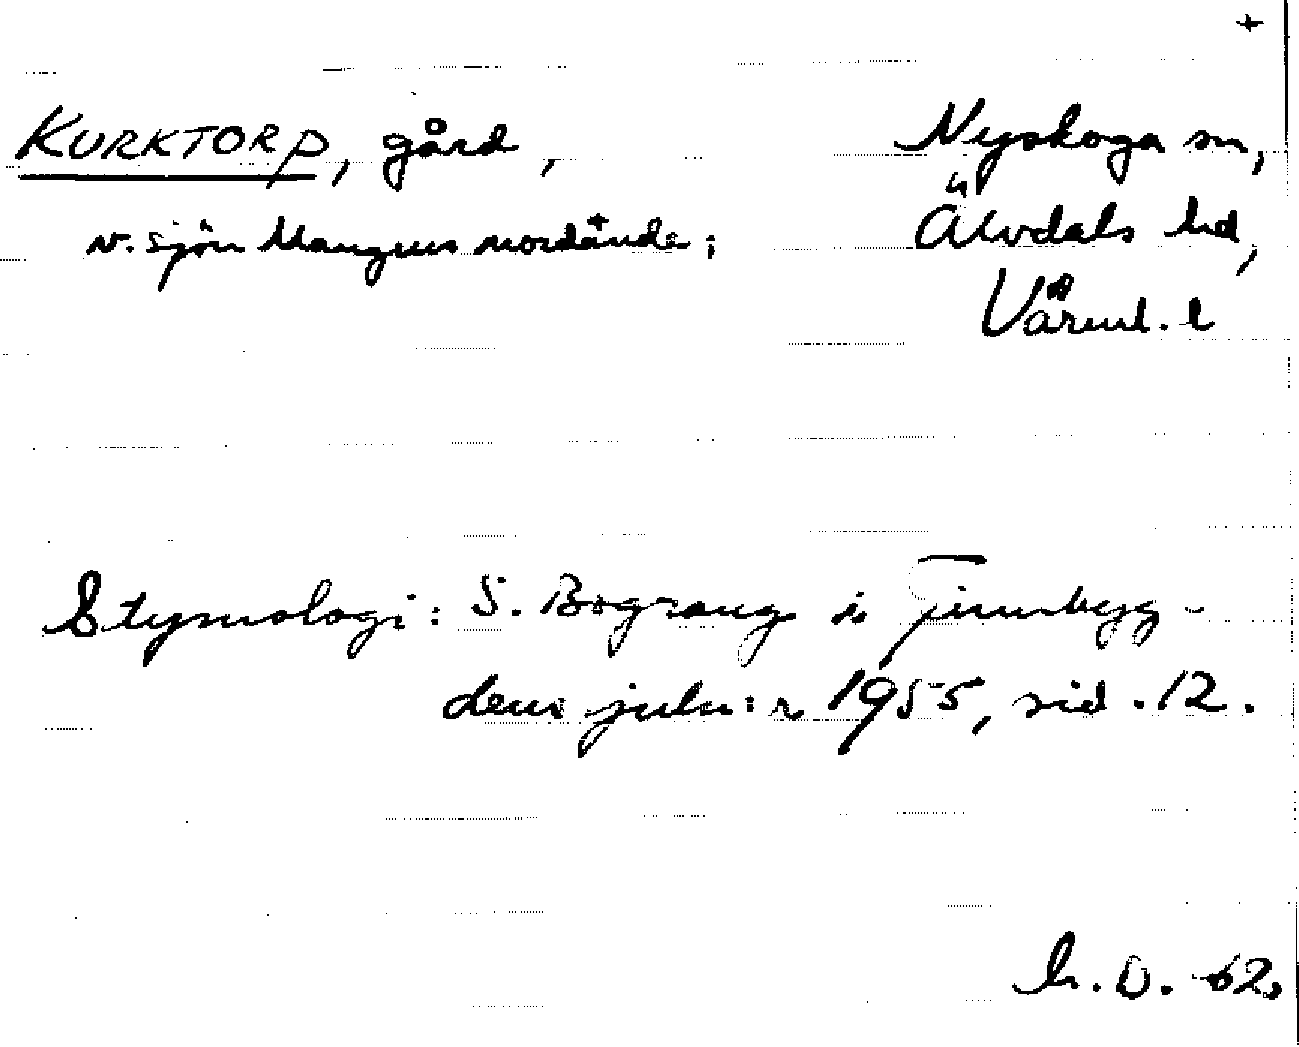 +
KURKTORP, gård, Nyskoga sn,
v. sjön Mangens nordände; Älvdals hd,
Värml. l
Etymologi: S. Bograng i Finnbygg-
dens juln:r 1955, sid. 12.
h. D. 62.